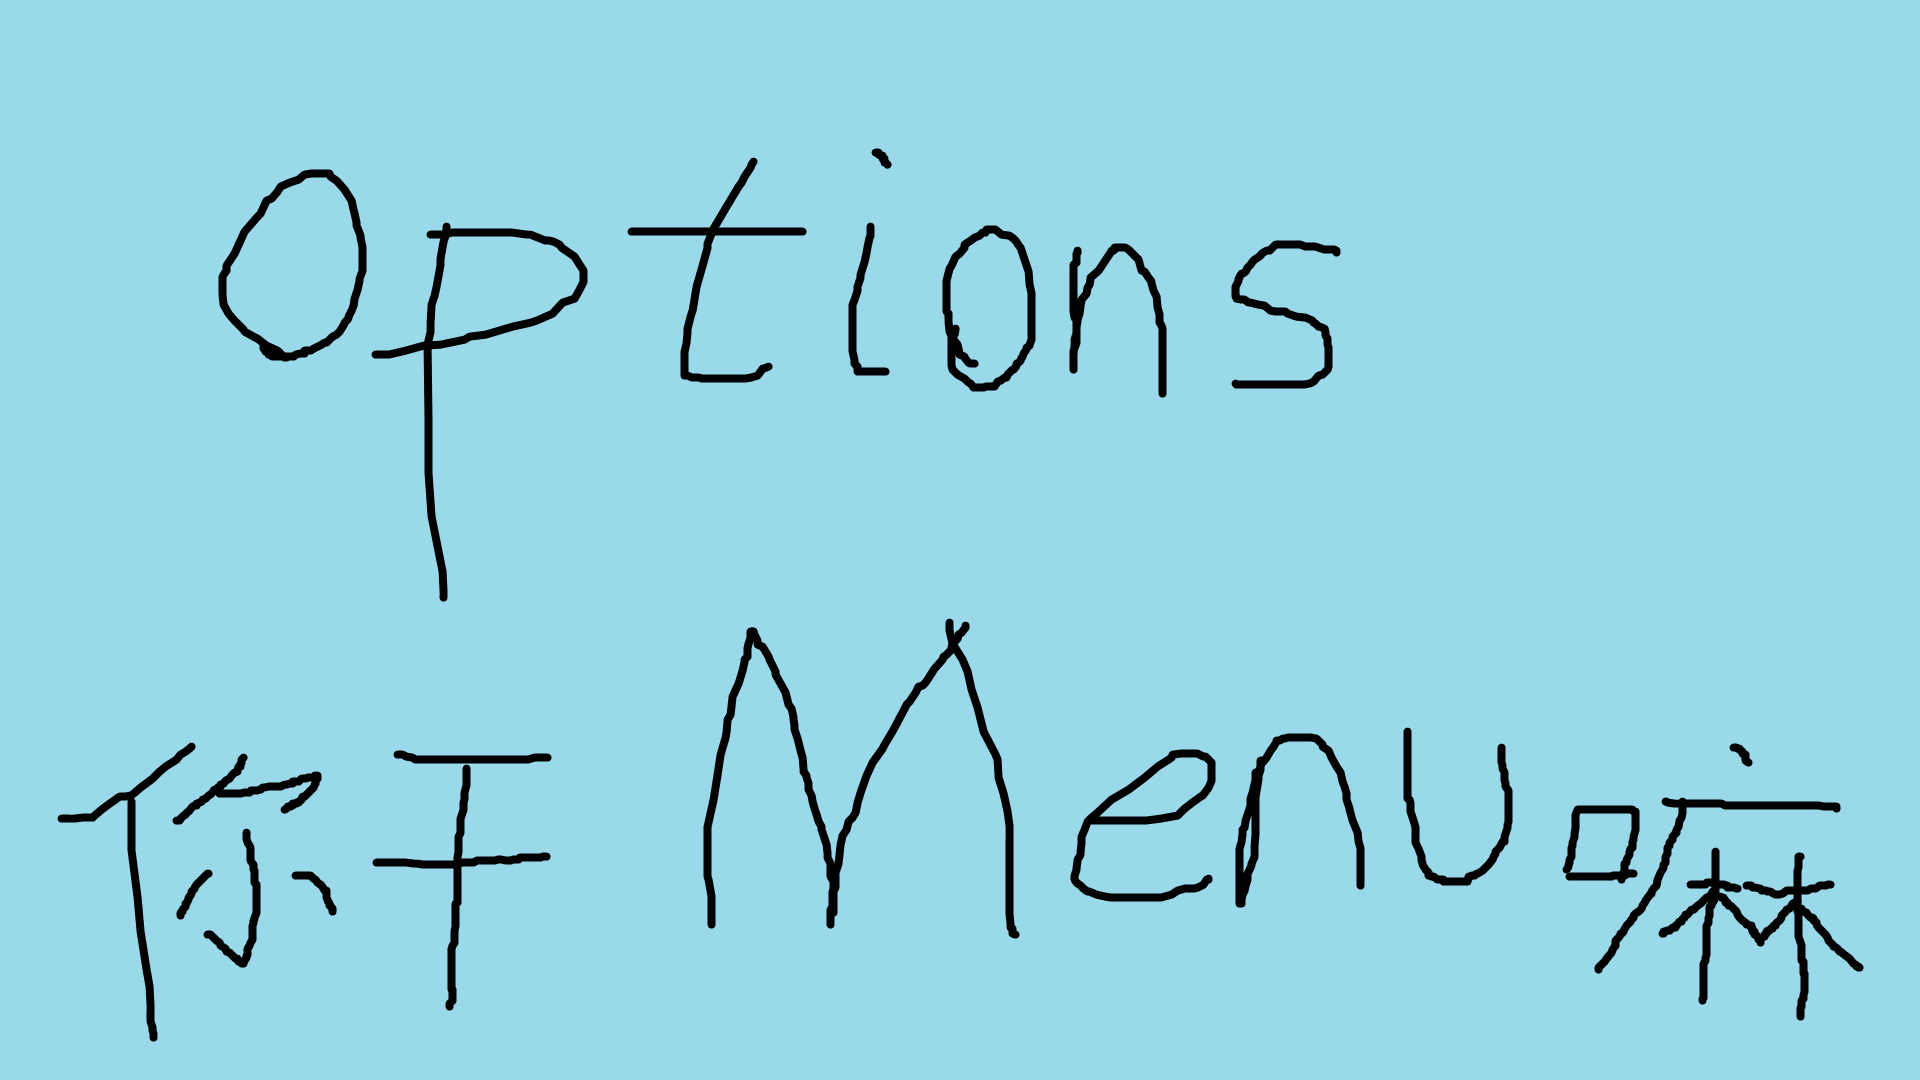 Options
你干Menu嘛